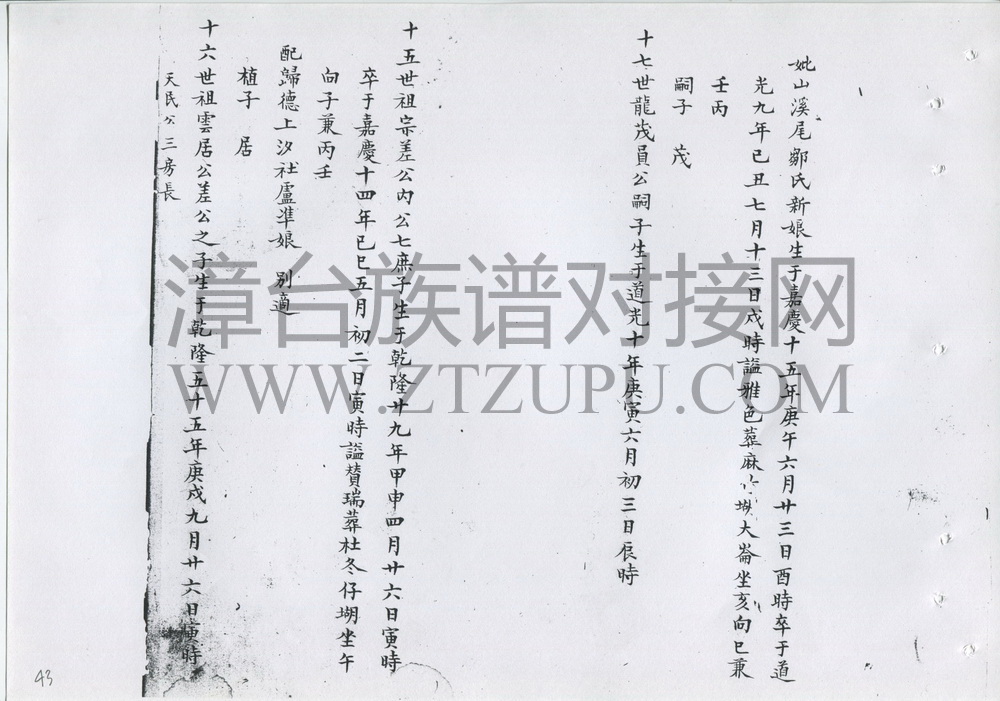 妣山溪尾鄒氏新娘生于嘉慶十五年庚午六月廿三日酉時卒于道
光九年己丑七月十三日戌時謚雅色葬麻坑大崙坐亥向巳兼
壬丙
嗣子 茂
十七世龍茂員公嗣子生于道光十年庚寅六月初三日辰時
十五世祖宗差公內公七庶子生于乾隆廿九年甲申四月廿六日寅時
卒于嘉慶十四年己巳五月初二日寅時謚贊瑞葬杜冬仔坳坐午
向子兼丙壬
配歸德上汐社盧準娘 別適
植子 居
十六世祖雲居公差公之子生于乾隆五十五年庚戌九月廿六日寅時
天民公三房長
漳台族谱对接网
WWW.ZTZUPU.COM
43